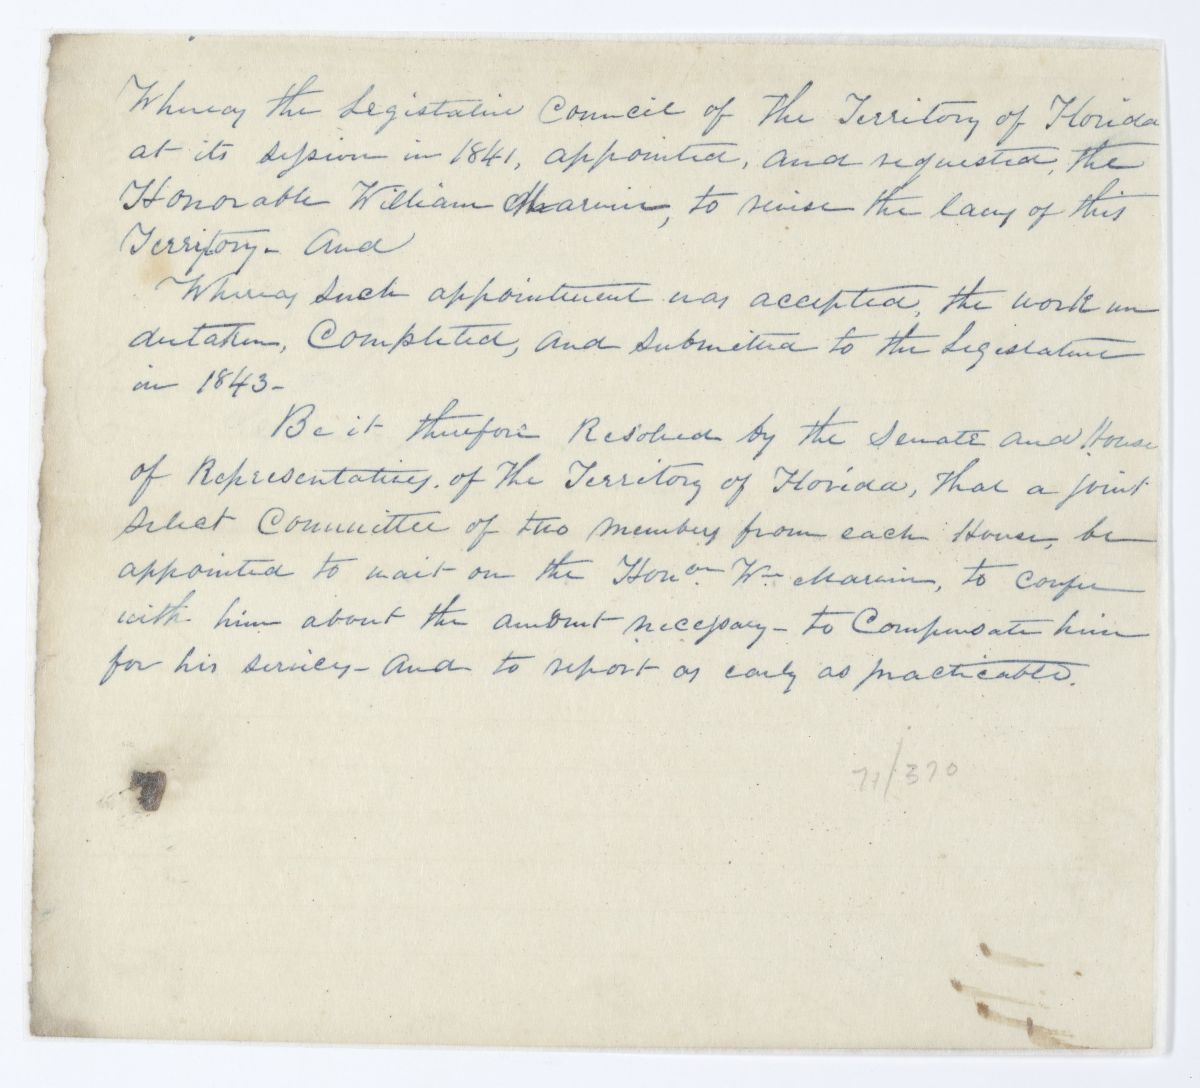 Whereas the Legislative Council of the Territory of Florida
at its session in 1841, appointed, and requested, the
Honorable William Marvin, to revise the laws of this
Territory - And
Whereas such appointment was accepted, the work un
dertaken, Completed, and submitted to the Legislature
in 1843 -
Be it therefore Resolved by the Senate and House
of Representatives, of the Territory of Florida, that a joint
select Committee of two members from each House, be
appointed to wait on the Hon. Wm Marvin, to confer
with him about the amount necessary - to Compensate him
for his services - And to report as early as practicable.
71/370